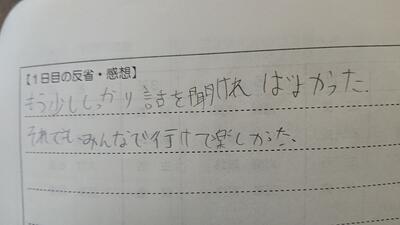 【1日目の反省・感想】
もう少ししっかり話を聞ければよかった.
それでもみんなで行けて楽しかった.